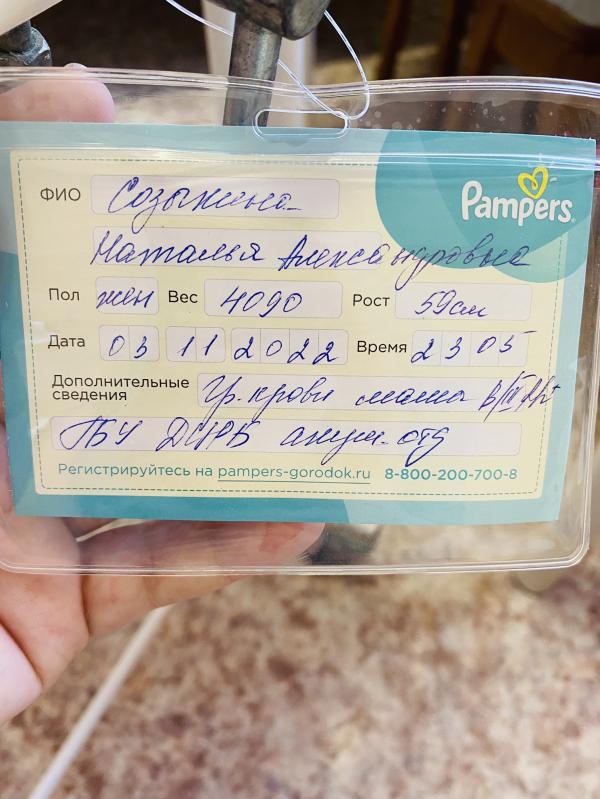 Pampers
ФИО Созыкина
Наталья Александровна
Пол жен Вес 4090 Рост 59см
Дата 03 11 2022 Время 2305
Дополнительные сведения гр. крови мама B/III/Rh+
ГБУ ДЦРБ акуш. отд
Регистрируйтесь на pampers-gorodok.ru 8-800-200-700-8